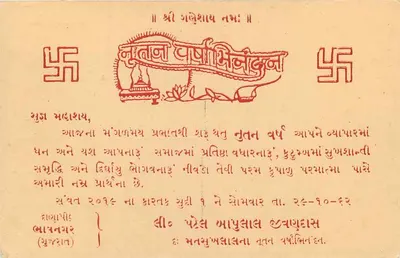 ॥ શ્રી ગણેશાય નમઃ ॥
નૂતન વર્ષાભિનંદન
સુજ્ઞ મહાશય,
આજના મંગળમય પ્રભાતથી શરૂ થતુ નૂતન વર્ષ આપને વ્યાપારમાં
ધન અને યશ આપનારૂં સમાજમાં પ્રતિષ્ઠા વધારનારૂં, કુટુમ્બમાં સુખશાન્તી
સમૃદ્ધિ અને દિર્ઘાયુ ભોગવનારૂં નીવડો તેવી પરમ કૃપાળુ પરમાત્મા પાસે
અમારી નમ્ર પ્રાર્થના છે.
સંવત ૨૦૧૯ ના કારતક સુદી ૧ ને સોમવાર તા. ૨૯-૧૦-૬૨
દાણાપીઠ
ભાવનગર
(ગુજરાત)
લી૦ પટેલ બાપુલાલ જીવણદાસ
દા મનસુખલાલના નૂતન વર્ષાભિનંદન.